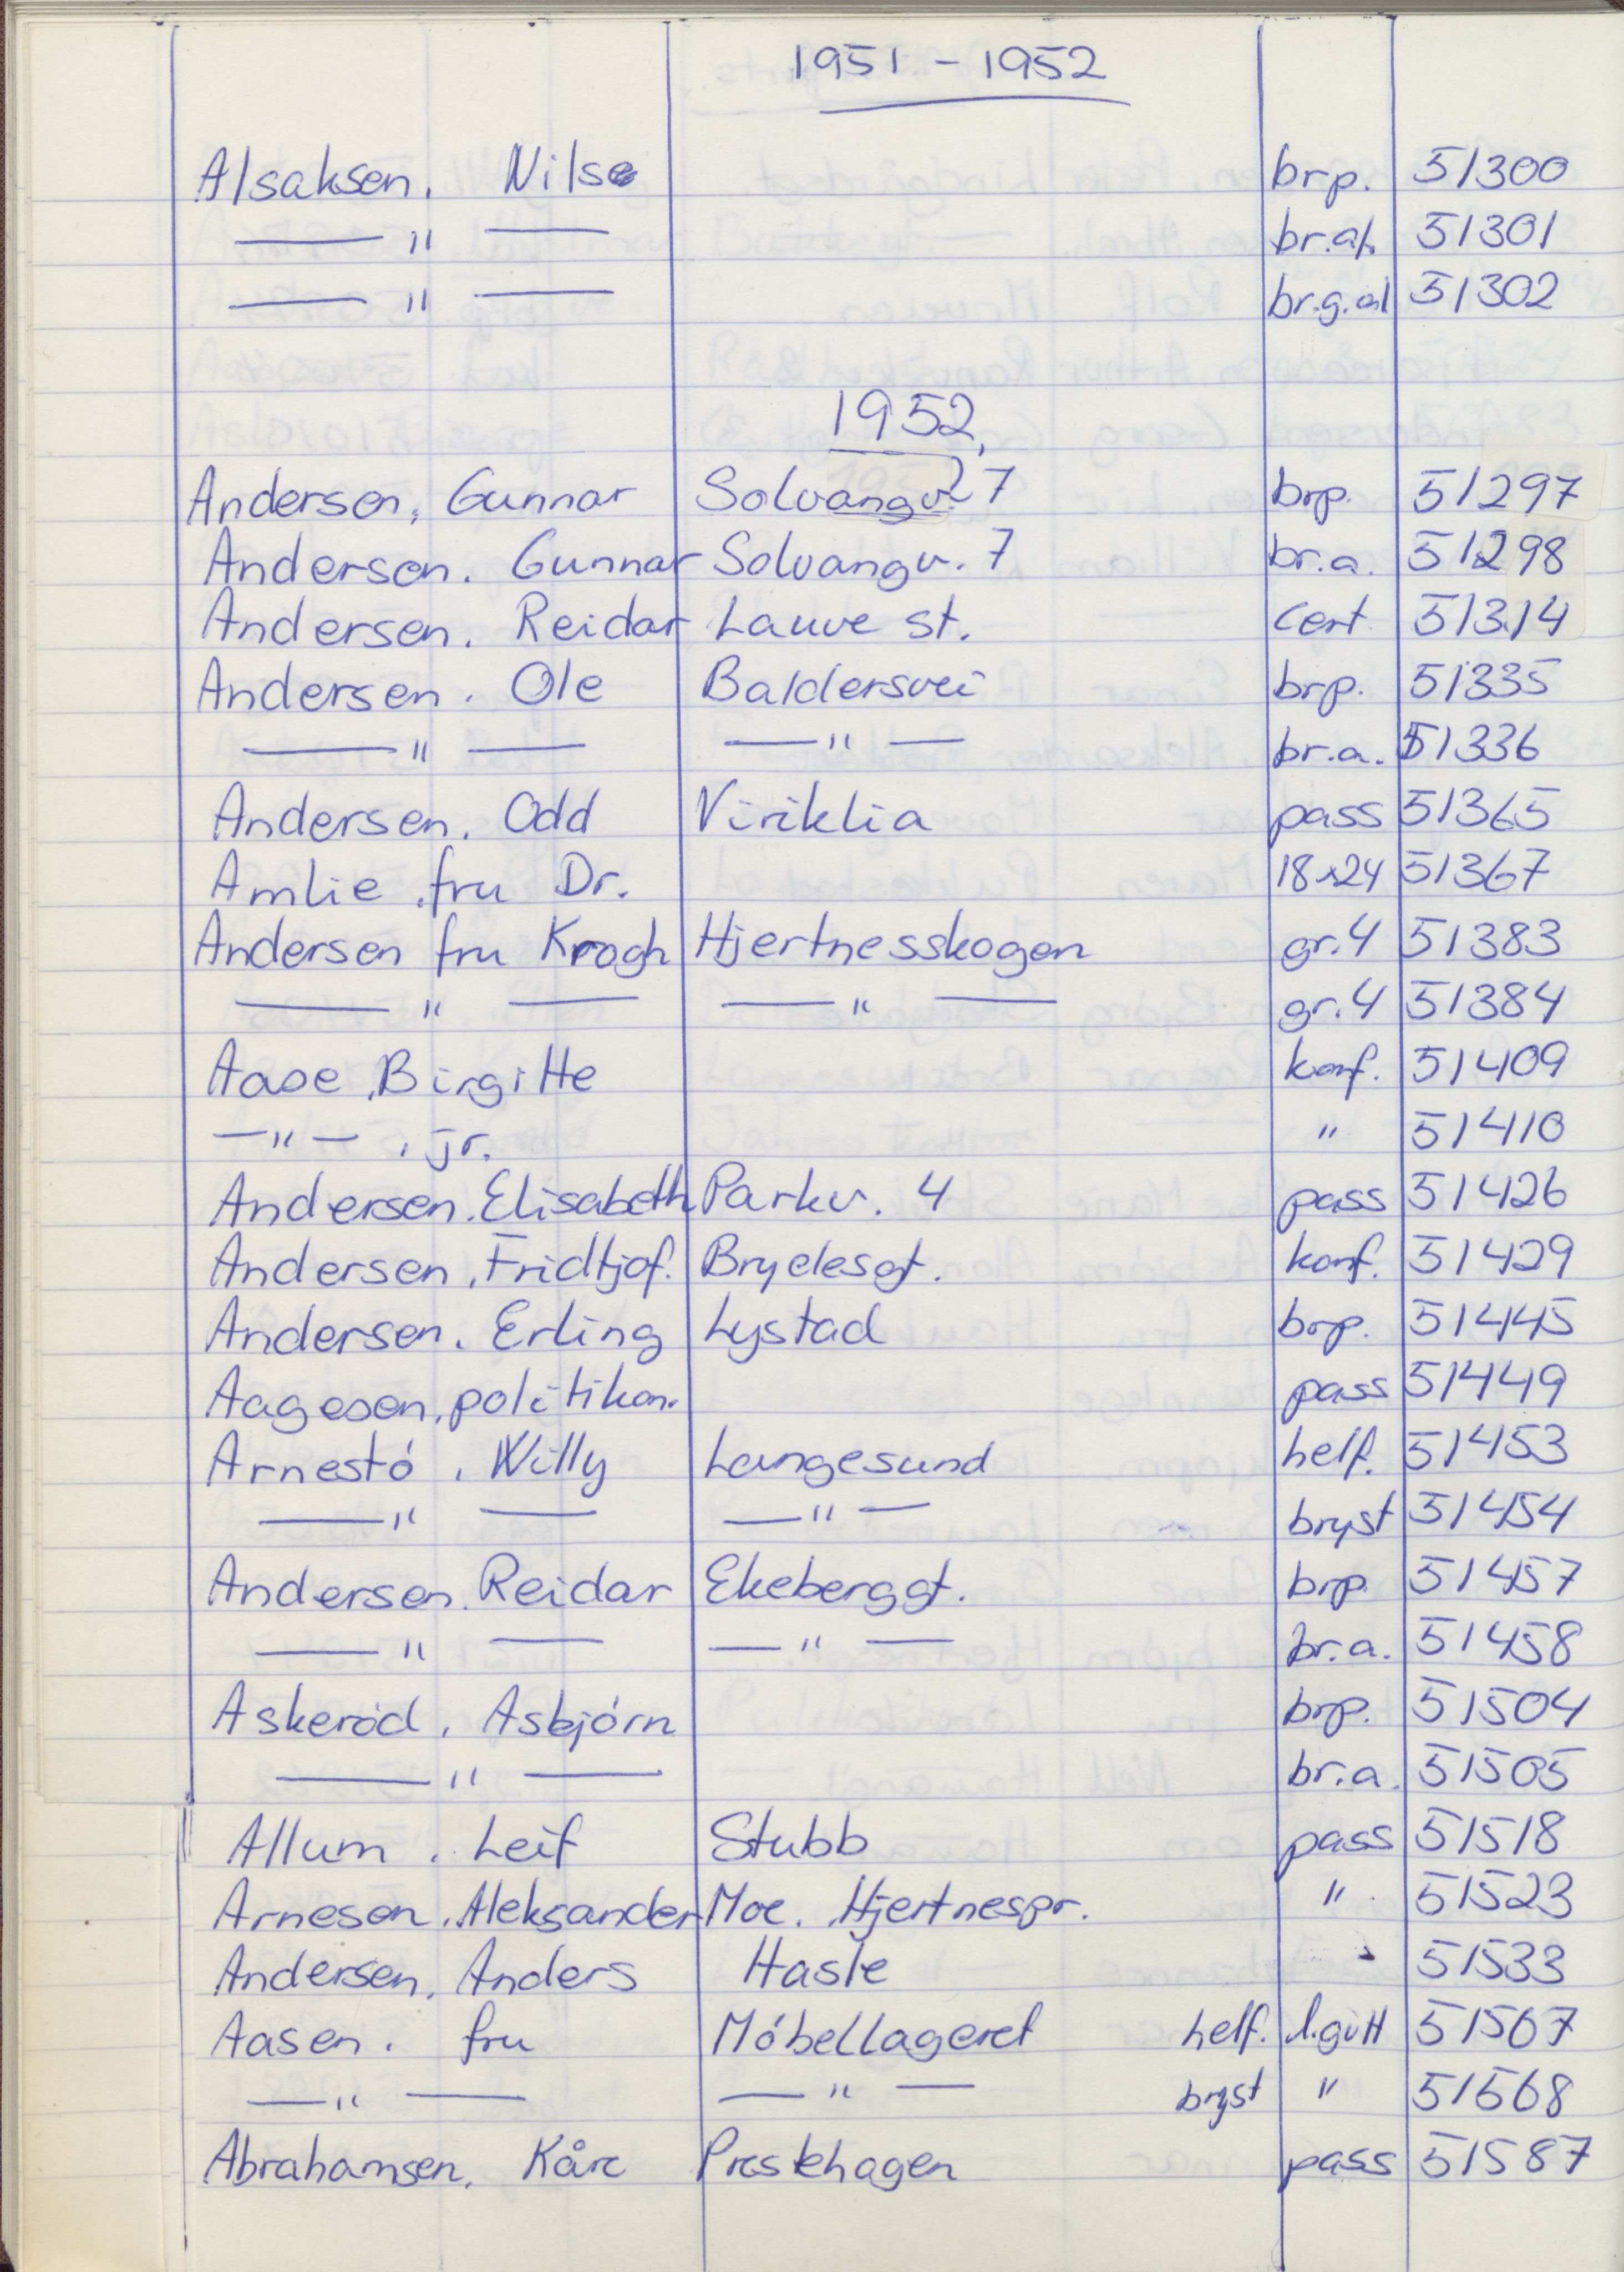 1951 - 1952
Alsaksen. Nils brp. 51300
—— " —— br.a. 51301
—— " —— br.g.al 51302
1952
Andersen, Gunnar Solvangv. 7 brp. 51297
Andersen. Gunnar Solvangv. 7 br.a. 51298
Andersen. Reidar Lauve st. cert 51314
Andersen. Ole Baldersvei brp. 51335
—— " —— —— " — br.a. 51336
Andersen. Odd Viriklia pass 51365
Amlie. fru Dr. 18x24 51367
Andersen fru Krogh Hjertnesskogen gr. 4 51383
—— " —— —— " —— gr. 4 51384
Aase, Birgitte konf. 51409
— " — , jr. " 51410
Andersen. Elisabeth Parkv. 4 pass 51426
Andersen, Fridtjof. Brydesgt. konf. 51429
Andersen. Erling Lystad brp. 51445
Aagesen, politikon. pass 51449
Arnestó, Willy Langesund helf. 51453
—— " —— — " — bryst 51454
Andersen. Reidar Ekeberggt. brp. 51457
—— " —— — " — br.a. 51458
Askeród, Asbjórn brp. 51504
—— " —— br.a. 51505
Allum. Leif Stubb pass 51518
Arnesen, Aleksander Moe. Hjertnespr. " 51523
Andersen, Anders Hasle " 51533
Aasen. fru Móbellageret helf. l.gutt 51567
— " —— — " — bryst " 51568
Abrahamsen, Kåre Preskhagen pass 51587